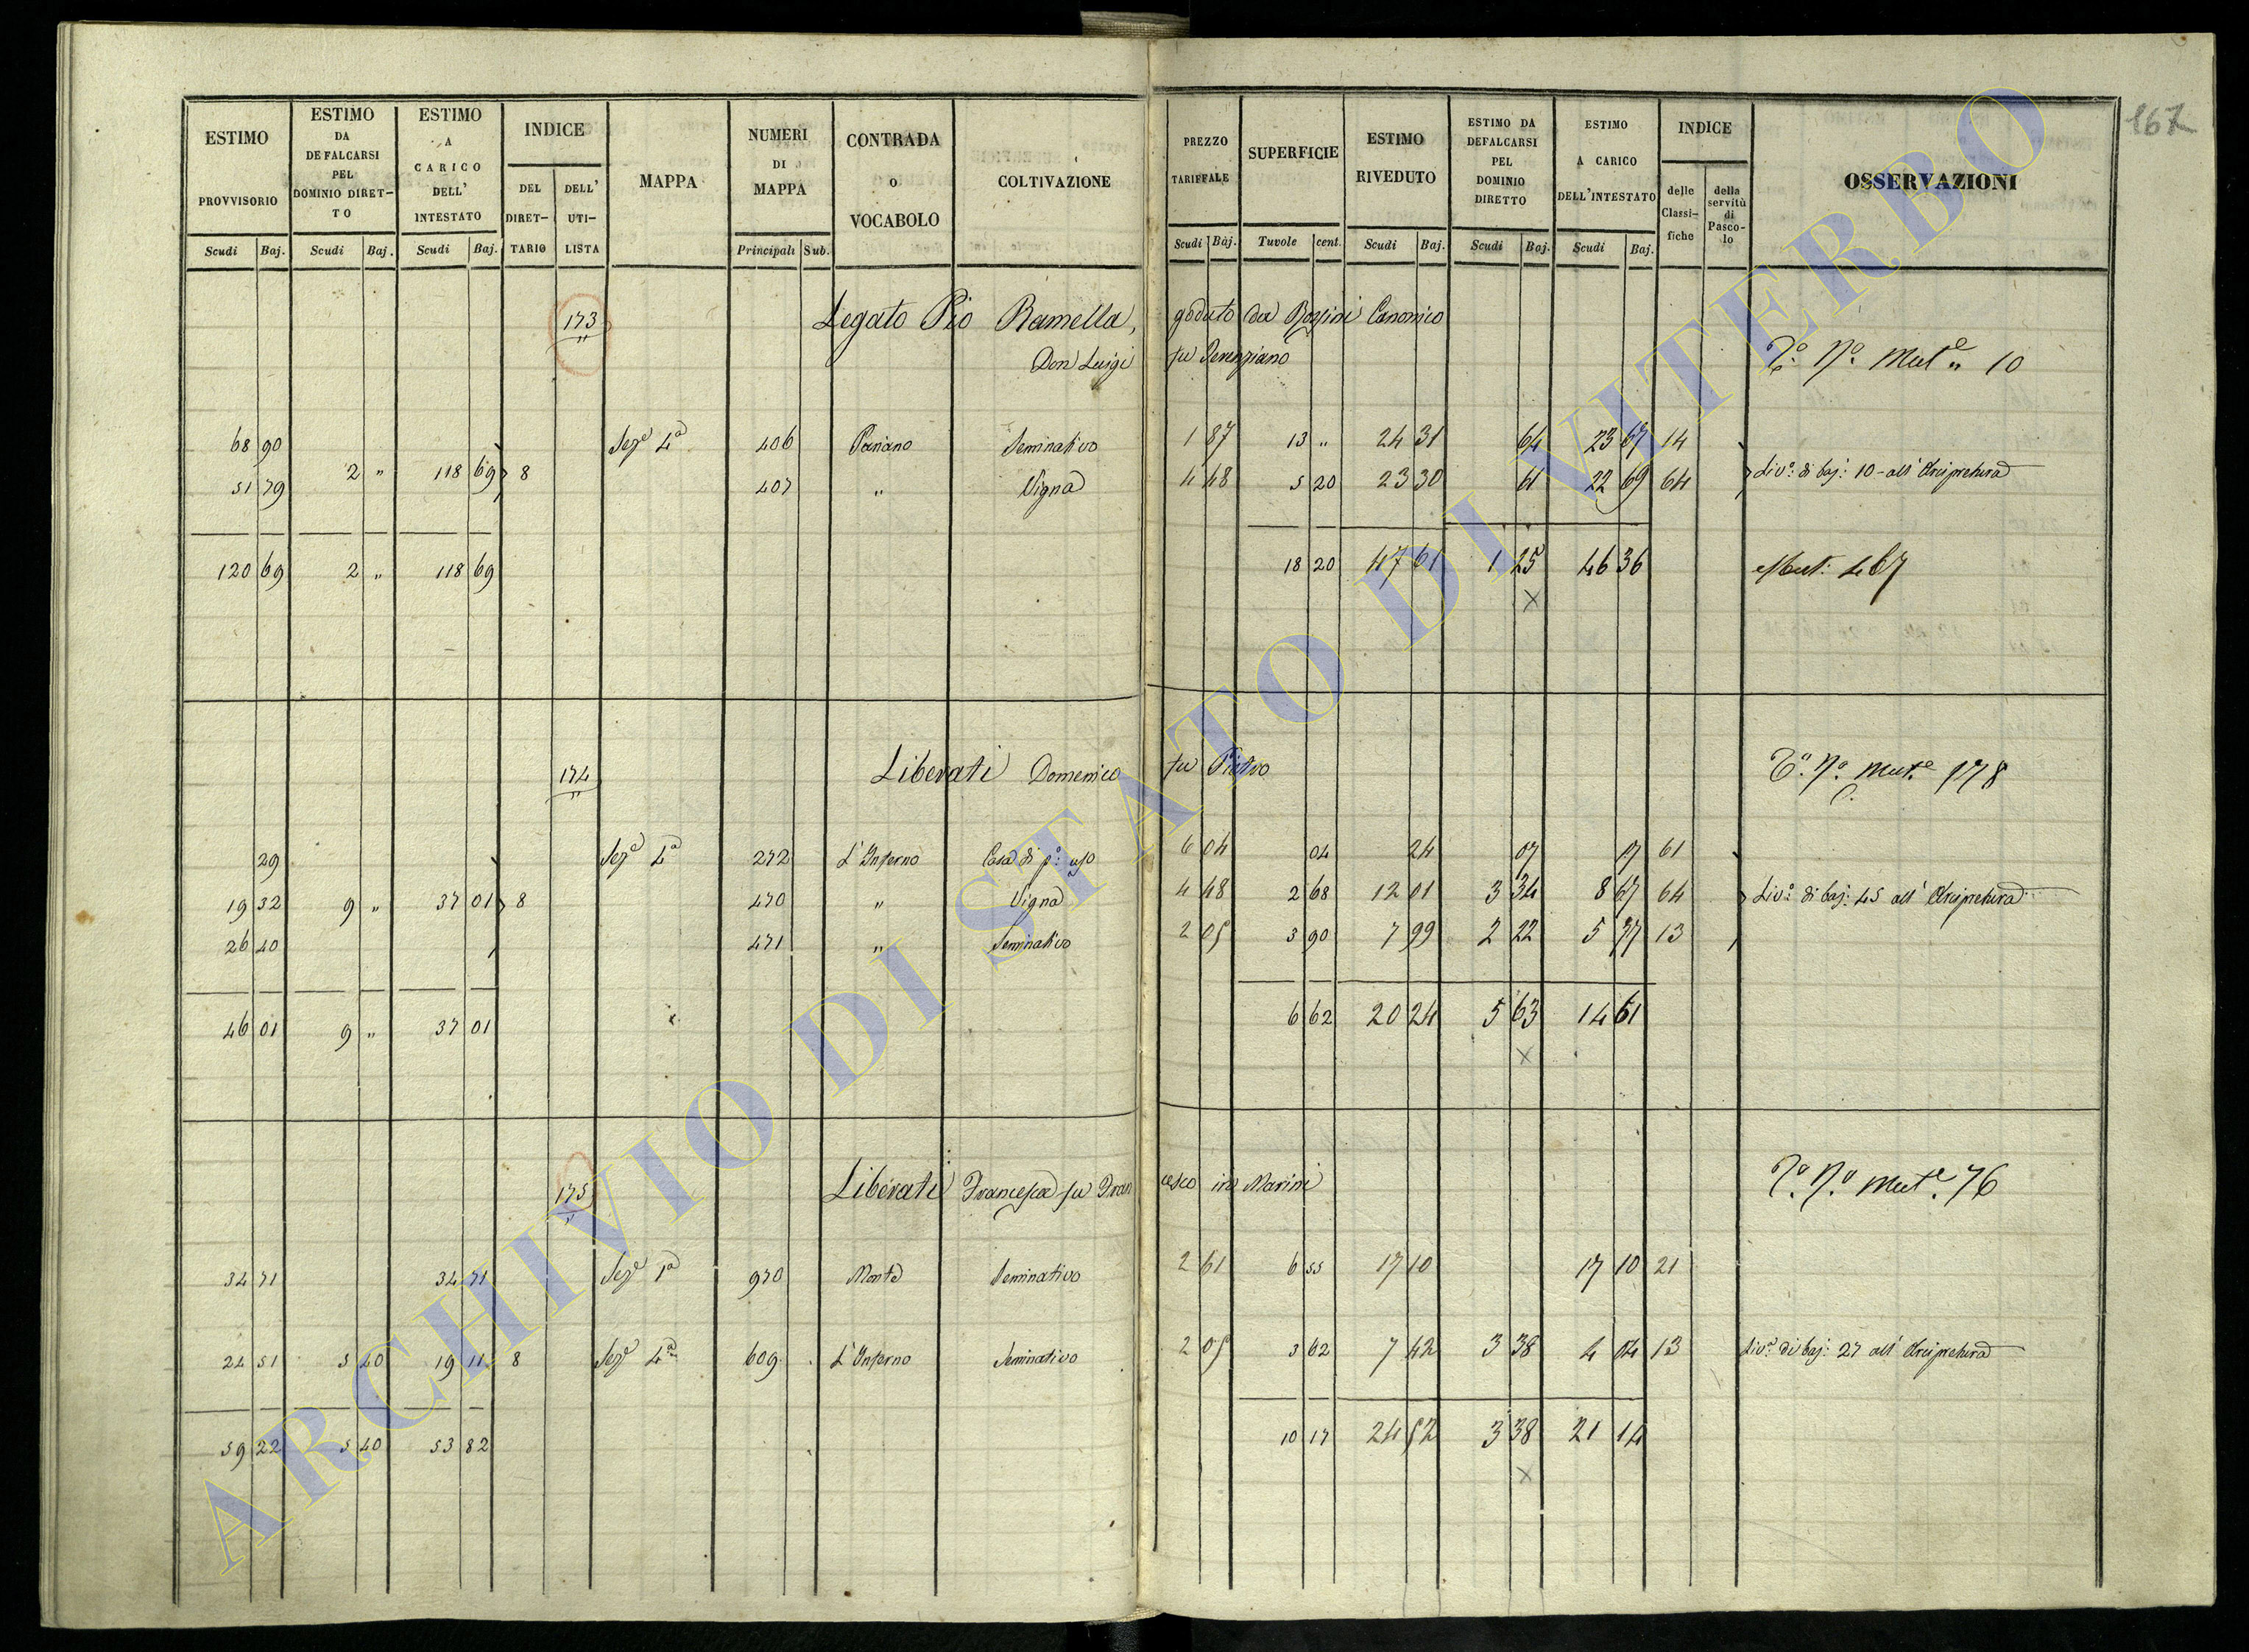 167
ESTIMO PROVVISORIO
ESTIMO DA DEFALCARSI PEL DOMINIO DIRETTO
ESTIMO A CARICO DELL' INTESTATO
INDICE
DEL DIRETTARIO
DELL' UTILISTA
MAPPA
NUMERI DI MAPPA
CONTRADA O VOCABOLO
COLTIVAZIONE
PREZZO TARIFFALE
SUPERFICIE
ESTIMO RIVEDUTO
ESTIMO DA DEFALCARSI PEL DOMINIO DIRETTO
ESTIMO A CARICO DELL'INTESTATO
INDICE
delle Classifiche
della servitù di Pascolo
OSSERVAZIONI
Scudi Baj. Scudi Baj. Scudi Baj. Principali Sub. Scudi Baj. Tavole cent. Scudi Baj. Scudi Baj. Scudi Baj.
173 Legato Pio Ramella, goduto da Rossini Canonico
Don Luigi fu Terenziano Mut.e 10
68 90 Sez.e 4a 406 Pariano Seminativo 1 87 13 " 24 31 64 23 67 14
2 " 118 69 8 Liv.o di baj: 10 all' Arcipretura
51 79 407 " Vigna 4 48 5 20 23 30 61 22 69 64
120 69 2 " 118 69 18 20 47 61 1 25 46 36 Mut: 467
174 Liberati Domenico fu Pietro Mut.e 178
29 Sez.e 4a 272 L'Inferno Casa di p.o uso 6 04 04 24 07 17 61
19 32 9 " 37 01 8 470 " Vigna 4 48 2 68 12 01 3 34 8 67 64 Liv.o di baj: 45 all' Arcipretura
26 40 471 " Seminativo 2 05 3 90 7 99 2 22 5 77 13
46 01 9 " 37 01 6 62 20 24 5 63 14 61
175 Liberati Francesca fu Francesco in Marini Mut.e 76
34 71 34 71 Sez.e 1a 970 Monte Seminativo 2 61 6 55 17 10 17 10 21
24 51 5 40 19 11 8 Sez.e 4a 609 L'Inferno Seminativo 2 05 3 62 7 42 3 38 4 04 13 Liv.o di baj: 27 all' Arcipretura
59 22 5 40 53 82 10 17 24 52 3 38 21 14
ARCHIVIO DI STATO DI VITERBO